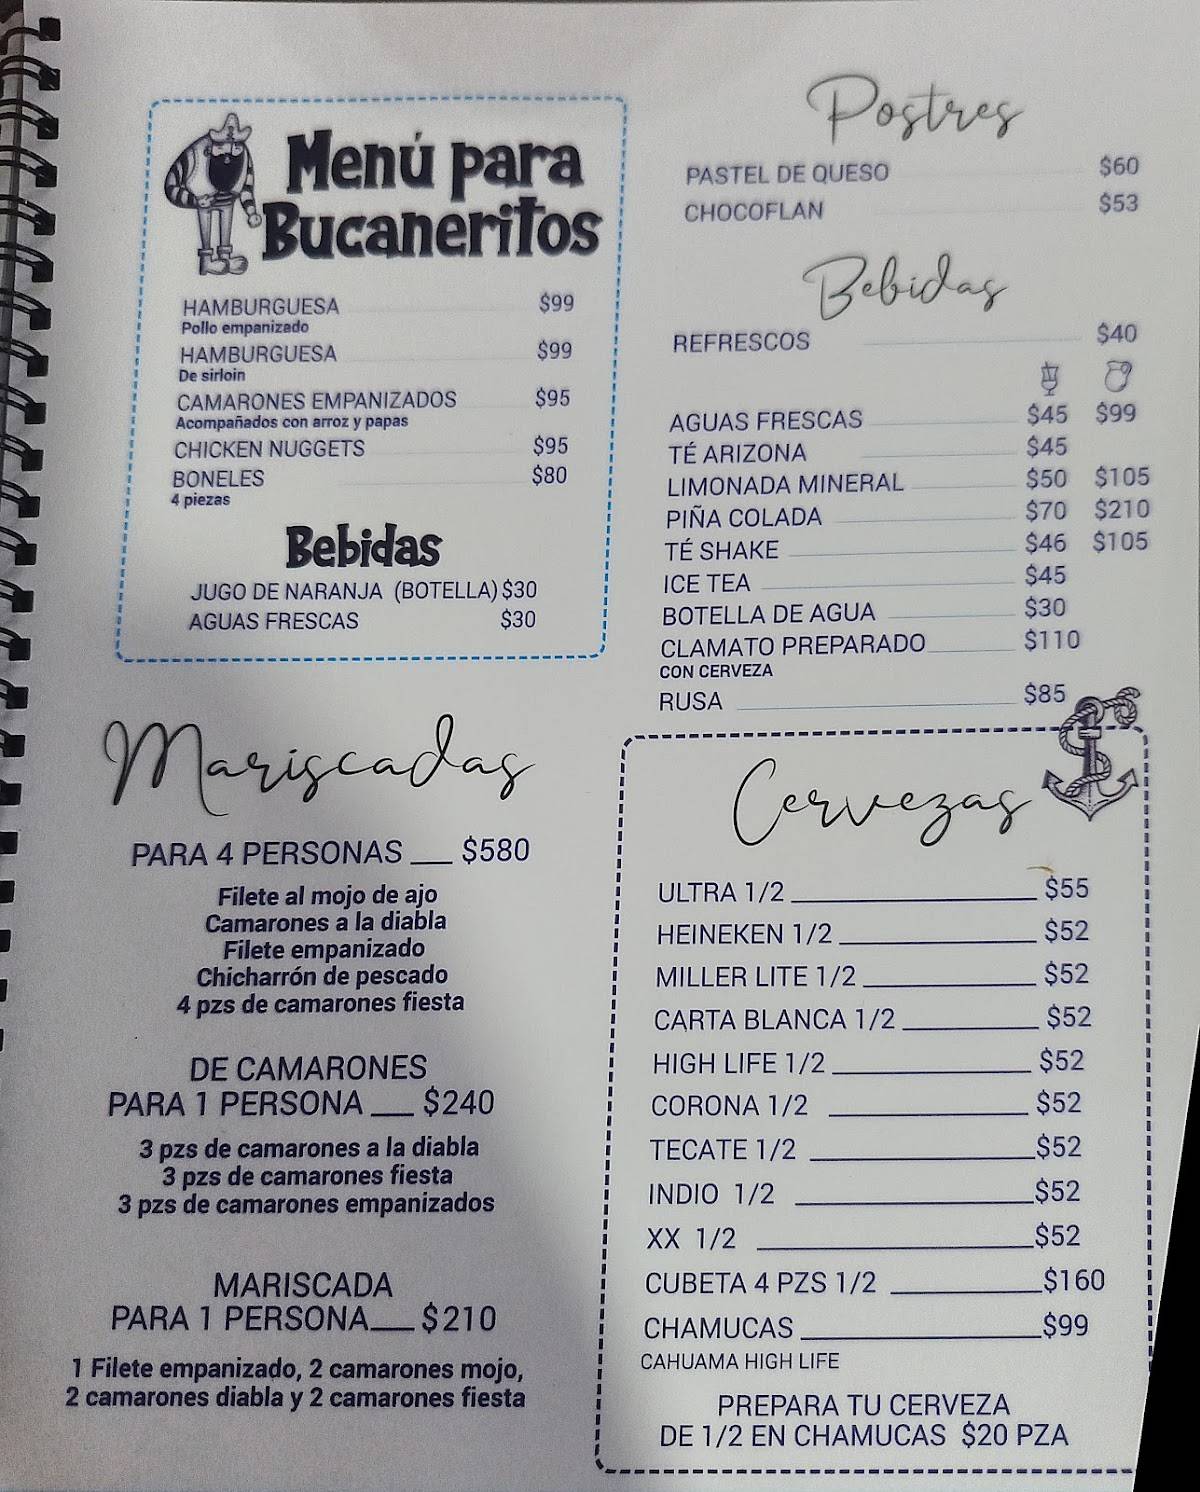 Menú para
Bucaneritos
HAMBURGUESA $99
Pollo empanizado
HAMBURGUESA $99
De sirloin
CAMARONES EMPANIZADOS $95
Acompañados con arroz y papas
CHICKEN NUGGETS $95
BONELES $80
4 piezas
Bebidas
JUGO DE NARANJA (BOTELLA) $30
AGUAS FRESCAS $30
Mariscadas
PARA 4 PERSONAS $580
Filete al mojo de ajo
Camarones a la diabla
Filete empanizado
Chicharrón de pescado
4 pzs de camarones fiesta
DE CAMARONES
PARA 1 PERSONA $240
3 pzs de camarones a la diabla
3 pzs de camarones fiesta
3 pzs de camarones empanizados
MARISCADA
PARA 1 PERSONA $210
1 Filete empanizado, 2 camarones mojo,
2 camarones diabla y 2 camarones fiesta
Postres
PASTEL DE QUESO $60
CHOCOFLAN $53
Bebidas
REFRESCOS $40
AGUAS FRESCAS $45 $99
TÉ ARIZONA $45
LIMONADA MINERAL $50 $105
PIÑA COLADA $70 $210
TÉ SHAKE $46 $105
ICE TEA $45
BOTELLA DE AGUA $30
CLAMATO PREPARADO $110
CON CERVEZA
RUSA $85
Cervezas
ULTRA 1/2 $55
HEINEKEN 1/2 $52
MILLER LITE 1/2 $52
CARTA BLANCA 1/2 $52
HIGH LIFE 1/2 $52
CORONA 1/2 $52
TECATE 1/2 $52
INDIO 1/2 $52
XX 1/2 $52
CUBETA 4 PZS 1/2 $160
CHAMUCAS $99
CAHUAMA HIGH LIFE
PREPARA TU CERVEZA
DE 1/2 EN CHAMUCAS $20 PZA